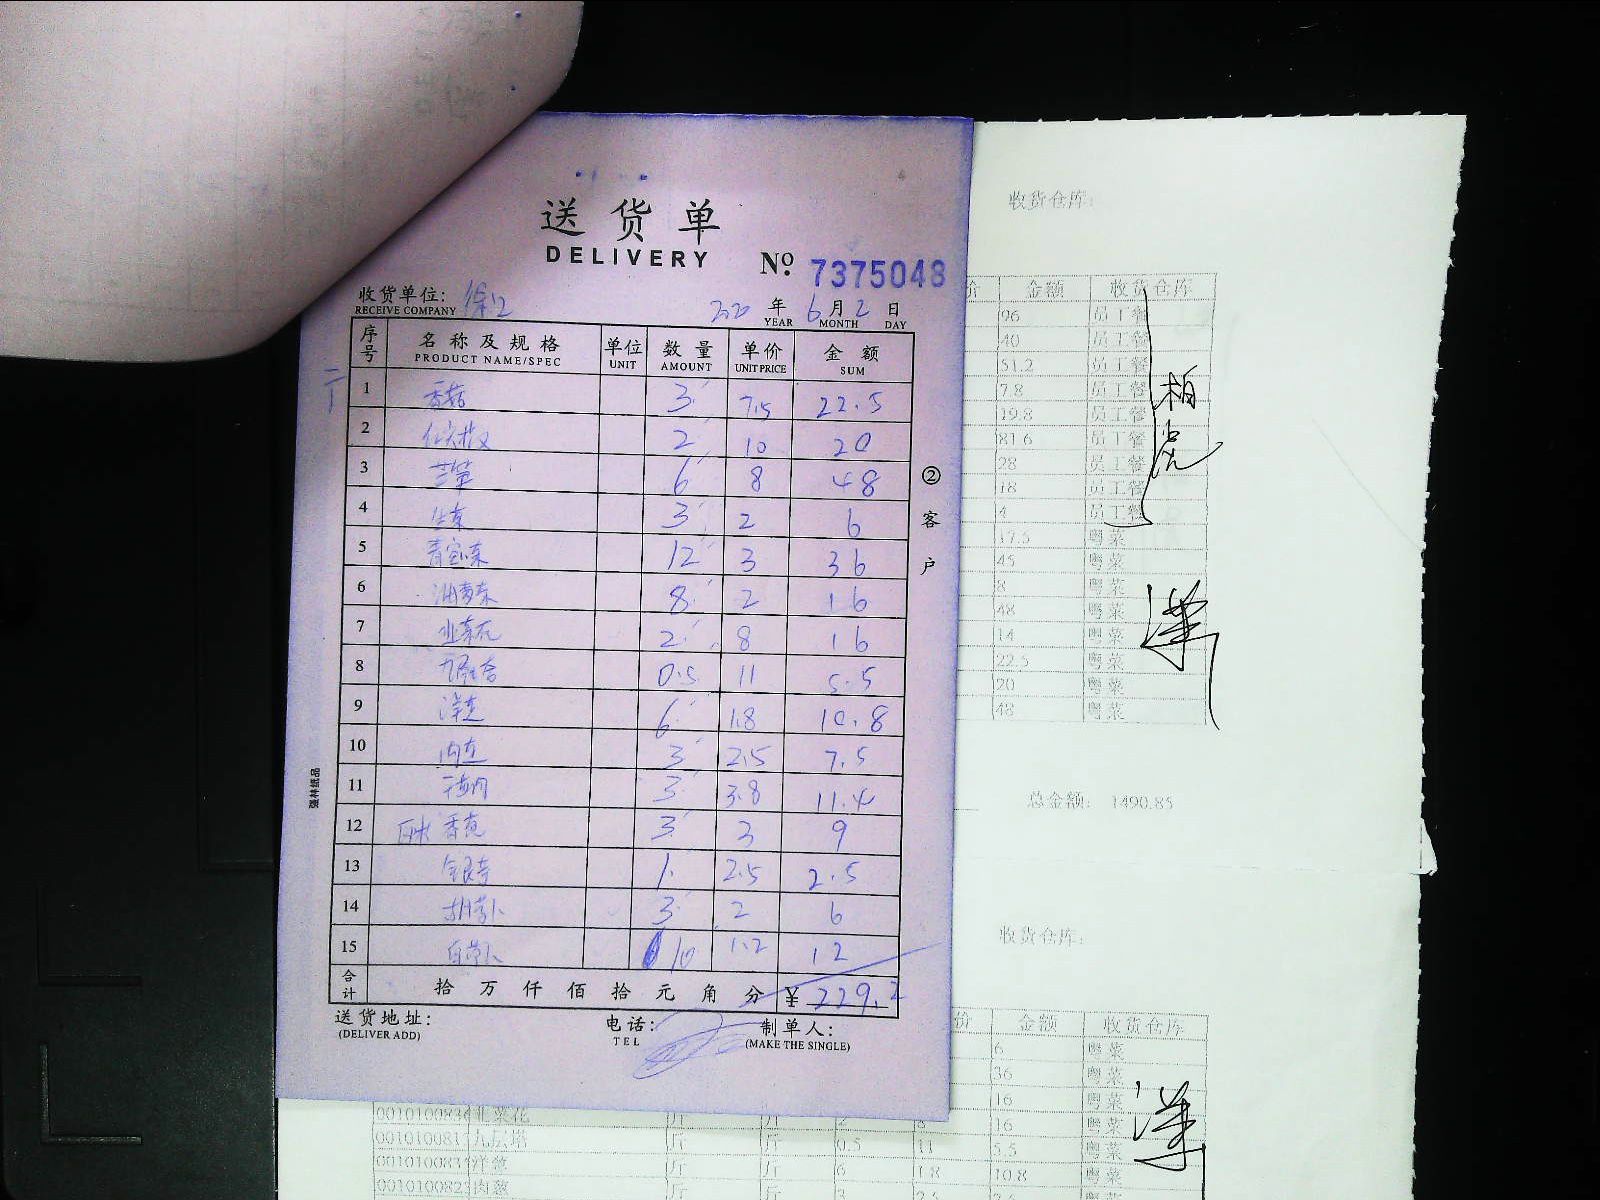 送货单
DELIVERY
№ 7375048
收货单位: 徐汇
RECEIVE COMPANY
2020 年 6 月 2 日
YEAR MONTH DAY
序号 名称及规格 单位 数量 单价 金额
PRODUCT NAME/SPEC UNIT AMOUNT UNIT PRICE SUM
1 香菇 3 7.5 22.5
2 2 10 20
3 6 8 48
4 生菜 3 2 6
5 12 3 36
6 油麦菜 8 2 16
7 韭菜花 2 8 16
8 九层塔 0.5 11 5.5
9 洋葱 6 1.8 10.8
10 肉葱 3 2.5 7.5
11 3 3.8 11.4
12 香芫 3 3 9
13 1 2.5 2.5
14 胡萝卜 3 2 6
15 白萝卜 10 1.2 12
合计 拾 万 仟 佰 拾 元 角 分 ¥ 229.2
送货地址: 电话: 制单人:
(DELIVER ADD) TEL (MAKE THE SINGLE)
②客户
强林纸品
收货仓库:
价 金额 收货仓库
96 员工餐
40 员工餐
51.2 员工餐
7.8 员工餐
19.8 员工餐
81.6 员工餐
28 员工餐
18 员工餐
4 员工餐
17.5 粤菜
45 粤菜
8 粤菜
48 粤菜
14 粤菜
22.5 粤菜
20 粤菜
48 粤菜
总金额: 1490.85
收货仓库:
价 金额 收货仓库
6 粤菜
36 粤菜
16 粤菜
韭菜花 斤 斤 2 8 16 粤菜
九层塔 斤 斤 0.5 11 5.5 粤菜
洋葱 斤 斤 6 1.8 10.8 粤菜
肉葱 斤 斤 3 2.5 7.5 粤菜